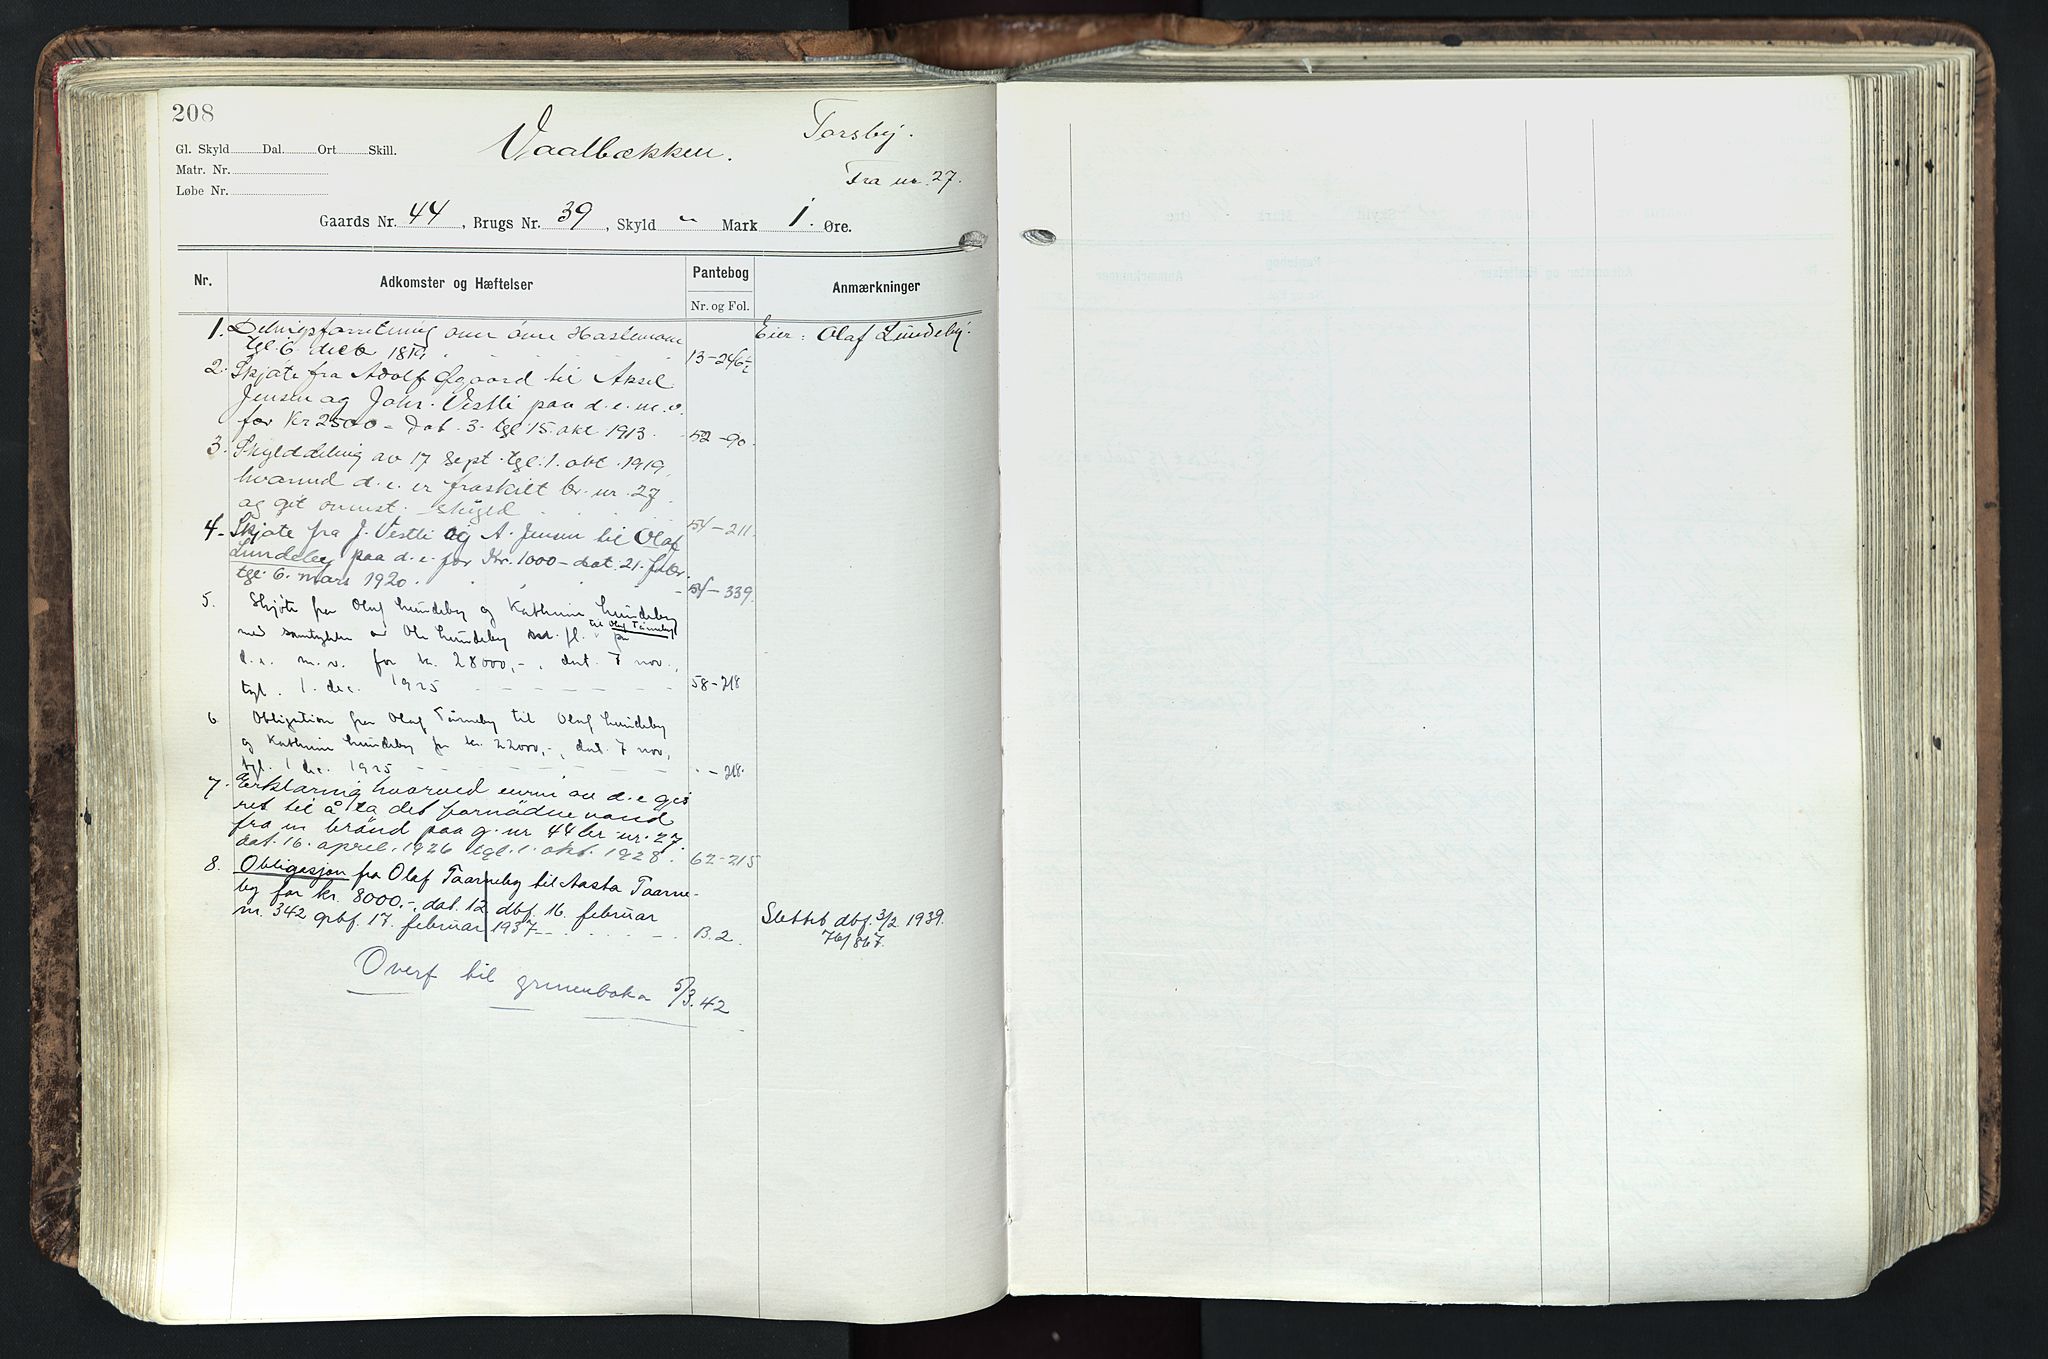 208
Gl. Skyld Dal. Ort Skill.
Matr. Nr.
Løbe Nr.
Vaalbækken.
Torsby.
Fra nr. 27.
Gaards Nr. 44, Brugs Nr. 39, Skyld " Mark 1. Øre.
Nr.
Adkomster og Hæftelser
Pantebog
Nr. og Fol.
Anmærkninger
1. Delingsforretning over
tgl. 6. decb 13-246
Eier: Olaf Lundeby.
2. Skjøte fra Adolf Øgaard til Aksel
Jensen og Johs. Vestli paa d. e. m. v.
for Kr 2500 - Dat. 3. tgl. 15. okt 1913. 52-90
3. Skylddeling av 17 Sept. tgl. 1. okt. 1919,
hvorved d. e. er fraskilt br. nr. 27
og git ovenst. skyld 54-211
4. Skjøte fra J. Vestli og A. Jensen til Olaf
Lundeby paa d. e. for Kr. 1000 - dat. 21. febr.
tgl. 6. mars 1920. 54-339.
5. Skjøte fra Olaf Lundeby og Kathrine Lundeby
til Olaf Tørneby
med samtykke av Ole Lundeby fl. på
d. e. m. v. for kr. 28000,-, dat. 7 nov.,
tgl. 1. dec. 1925 58-218
6. Obligation fra Olaf Tørneby til Olaf Lundeby
og Kathrine Lundeby for kr. 22000,-, dat. 7 nov,
tgl. 1 dec. 1925 " - 218.
7. Erklæring hvorved eieren av d. e gis
ret til å ta det fornødne vand
fra en brønd paa g. nr 44 br. nr. 27.
dat. 16. april. 1926 tgl. 1. okt. 1928. 62-215
8. Obligasjon fra Olaf Taarneby til Aasta Taarne-
by for kr. 8000.-, dat. 12, dbf. 16. februar
nr. 342 grbf. 17. februar 1937 B. 2.
Slettet dbf. 3/2 1939.
76/867.
Overf til grunnboka 5/3. 42